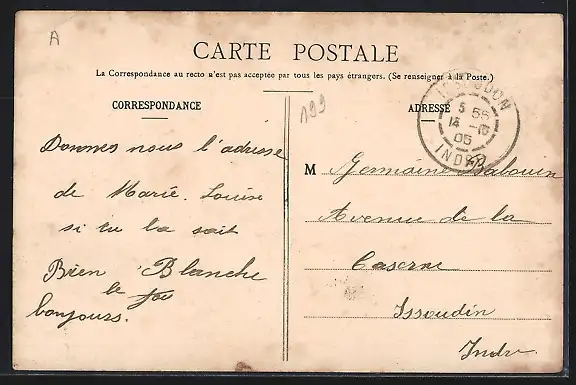 A
CARTE POSTALE
La Correspondance au recto n'est pas acceptée par tous les pays étrangers. (Se renseigner à la Poste.)
CORRESPONDANCE
Donnes nous l'adresse
de Marie. Louise
si tu la sait
Bien Blanche
bonjours.
199
ADRESSE
ISSOUDUN
5 55
14 -10
05
INDRE
M Germaine Babouin
Avenue de la
Caserne
Issoudin
Indre